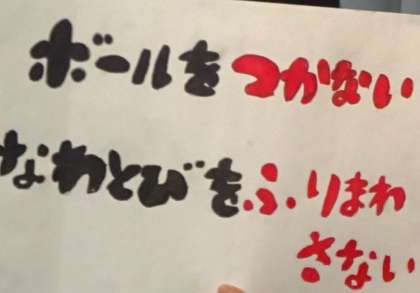 ボールをつかない
なわとびをふりまわ
さない